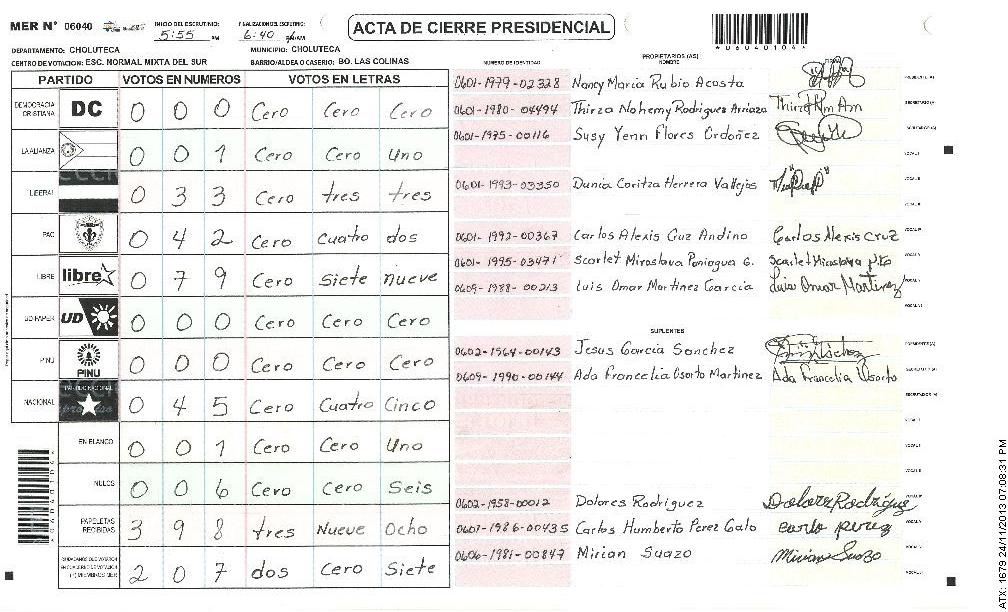 MER N° 06040
INICIO DEL ESCRUTINIO: 5:55 PM
FINALIZACION DEL ESCRUTINIO: 6:40
ACTA DE CIERRE PRESIDENCIAL
*06040104*
DEPARTAMENTO: CHOLUTECA
MUNICIPIO: CHOLUTECA
CENTRO DE VOTACION: ESC. NORMAL MIXTA DEL SUR
BARRIO/ALDEA O CASERIO: BO. LAS COLINAS
PARTIDO VOTOS EN NUMEROS VOTOS EN LETRAS
DEMOCRACIA CRISTIANA DC 0 0 0 Cero Cero Cero
LA ALIANZA 0 0 1 Cero Cero Uno
LIBERAL 0 3 3 Cero tres tres
PAC 0 4 2 Cero Cuatro dos
LIBRE libre 0 7 9 Cero Siete nueve
UD-FAPER UD 0 0 0 Cero Cero Cero
PINU PINU 0 0 0 Cero Cero Cero
NACIONAL 0 4 5 Cero Cuatro Cinco
EN BLANCO 0 0 1 Cero Cero Uno
NULOS 0 0 6 Cero Cero Seis
PAPELETAS RECIBIDAS 3 9 8 tres Nueve Ocho
CIUDADANOS QUE VOTARON EN CUADERNO DE VOTACION (+) MIEMBROS MER 2 0 7 dos Cero Siete
NUMERO DE IDENTIDAD
PROPIETARIOS (AS)
NOMBRE
FIRMA
0601-1979-02328 Nancy Maria Rubio Acosta PRESIDENTE (A)
0601-1980-04494 Thirza Nohemy Rodriguez Arriaza SECRETARIO (A)
0601-1975-00116 Susy Yenn Flores Ordoñez ESCRUTADOR (A)
VOCAL I
0601-1993-03350 Dunia Caritza Herrera Vallejos VOCAL II
0601-1992-00367 Carlos Alexis Cruz Andino Carlos Alexis Cruz
0601-1995-03471 Scarlet Miroslava Paniagua G. Scarlet Miroslava
0609-1988-00213 Luis Omar Martinez Garcia Luis Omar Martinez
SUPLENTES
0602-1964-00143 Jesus Garcia Sanchez PRESIDENTE (A)
0609-1990-00144 Ada Francelia Osorto Martinez Ada Francelia Osorto SECRETARIO (A)
ESCRUTADOR (A)
VOCAL I
VOCAL II
0602-1958-00012 Dolores Rodriguez Dolores Rodriguez
0607-1986-00435 Carlos Humberto Perez Galo Carlo perez
0606-1981-00847 Mirian Suazo Mirian Suazo
ATX: 1679 24/11/2013 07:08:31 PM